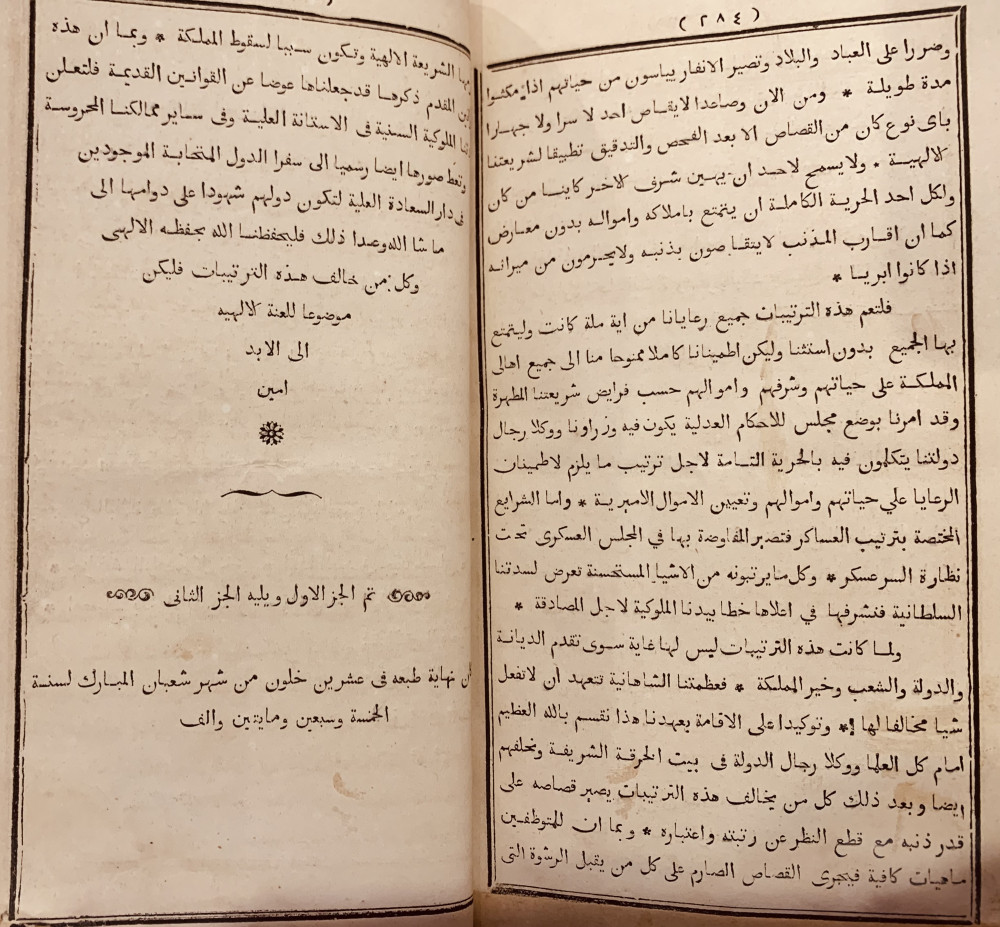 (٢٨٤)
وضررا على العباد والبلاد وتصير الانفار يياسون من حياتهم اذا مكثوا
مدة طويلة * ومن الان وصاعدا لايقاص احد لا سرا ولا جهارا
باى نوع كان من القصاص الا بعد الفحص والتدقيق تطبيقا لشريعتنا
الالهية * ولايسمح لاحد ان يهين شرف الاخر كاينا من كان
ولكل احد الحرية الكاملة ان يتمتع باملاكه وامواله بدون معارض
كما ان اقارب المذنب لايتقاصون بذنبه ولايحرمون من ميراثه
اذا كانوا ابريا *
فلتعم هذه الترتيبات جميع رعايانا من اية ملة كانت وليتمتع
بها الجميع بدون استثنا وليكن اطمينانا كاملا ممنوحا منا الى جميع اهالى
المملكة على حياتهم وشرفهم واموالهم حسب فرايض شريعتنا المطهرة
وقد امرنا بوضع مجلس للاحكام العدلية يكون فيه وزراونا ووكلا رجال
دولتنا يتكلمون فيه بالحرية التامة لاجل ترتيب ما يلزم لاطمينان
الرعايا علي حياتهم واموالهم وتعيين الاموال الاميرية * واما الشرايع
المختصة بترتيب العساكر فتصير المفاوضة بها في المجلس العسكرى تحت
نظارة السرعسكر * وكل مايرتبونه من الاشيا المستحسنة تعرض لسدتنا
السلطانية فنشرفها في اعلاها خطا بيدنا الملوكية لاجل المصادقة *
ولما كانت هذه الترتيبات ليس لها غاية سوى تقدم الديانة
والدولة والشعب وخير المملكة * فعظمتنا الشاهانية تتعهد ان لاتفعل
شيا مخالفا لها * وتوكيدا على الاقامة بعهدنا هذا نقسم بالله العظيم
امام كل العلما ووكلا رجال الدولة فى بيت الخرقة الشريفة ونحلفهم
ايضا وبعد ذلك كل من يخالف هذه الترتيبات يصير قصاصه على
قدر ذنبه مع قطع النظر عن رتبته واعتباره * وبما ان للمتوظفين
ماهيات كافية فيجرى القصاص الصارم على كل من يقبل الرشوة التى
الشريعة الالهية وتكون سببا لسقوط المملكة * وبما ان هذه
المقدم ذكرها قد جعلناها عوضا عن القوانين القديمة فلتعلن
الملوكية السنية فى الاستانة العلية وفى ساير ممالكنا المحروسة
وتعط صورها ايضا رسميا الى سفرا الدول المتحابة الموجودين
فى دار السعادة العلية لتكون دولهم شهودا على دوامها الى
ما شا الله وعدا ذلك فليحفظنا الله بحفظه الالهى
وكل من خالف هذه الترتيبات فليكن
موضوعا للعنة الالهيه
الى الابد
امين
تم الجز الاول ويليه الجز الثانى
نهاية طبعه فى عشرين خلون من شهر شعبان المبارك لسنة
الخمسة وسبعين ومايتين والف